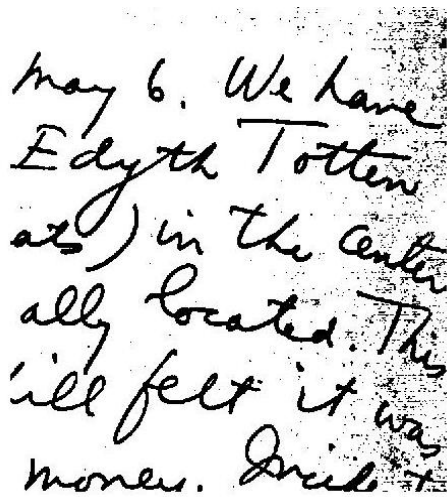 May 6. We have
Edyth Totten
ats) in the center
ally located. This
ill felt it was
money.